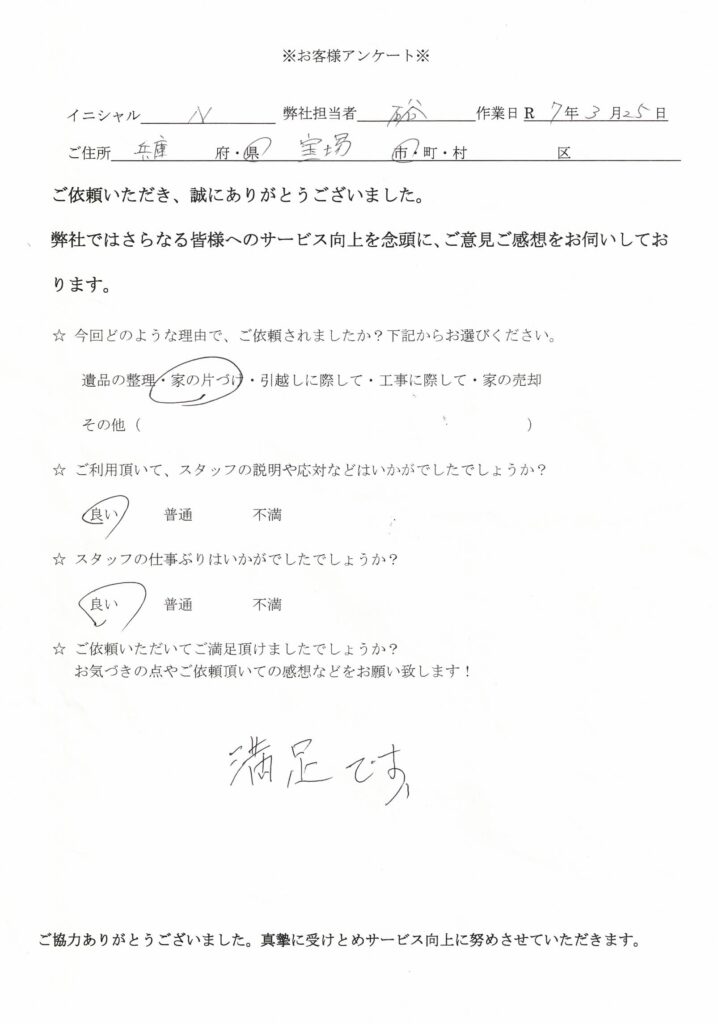 ※お客様アンケート※
イニシャル N 弊社担当者 作業日 R 7年 3月25日
ご住所 兵庫 府・県 宝塚 市・町・村 区
ご依頼いただき、誠にありがとうございました。
弊社ではさらなる皆様へのサービス向上を念頭に、ご意見ご感想をお伺いしてお
ります。
☆ 今回どのような理由で、ご依頼されましたか？下記からお選びください。
遺品の整理・家の片づけ・引越しに際して・工事に際して・家の売却
その他（ ）
☆ ご利用頂いて、スタッフの説明や応対などはいかがでしたでしょうか？
良い 普通 不満
☆ スタッフの仕事ぶりはいかがでしたでしょうか？
良い 普通 不満
☆ ご依頼いただいてご満足頂けましたでしょうか？
お気づきの点やご依頼頂いての感想などをお願い致します！
満足です、
ご協力ありがとうございました。真摯に受けとめサービス向上に努めさせていただきます。